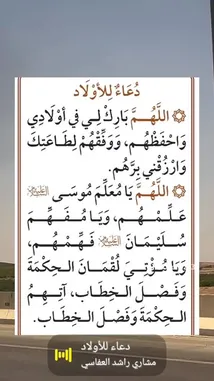 دُعَاءٌ لِلأَوْلَاد
۞ اللَّهُمَّ بَارِكْ لِي فِي أَوْلَادِي
وَاحْفَظْهُم، وَوَفِّقْهُمْ لِطَاعَتِكَ
وَارْزُقْنِي بِرَّهُم.
۞ اللَّهُمَّ يَا مُعَلِّمَ مُوسَى
عَلِّمْهُم، وَيَا مُفَهِّمَ
سُلَيْمَانَ فَهِّمْهُم،
وَيَا مُؤْتِيَ لُقْمَانَ الحِكْمَةَ
وَفَصْلَ الخِطَابِ، آتِهِمُ
الحِكْمَةَ وَفَصْلَ الخِطَابِ.
دعاء للأولاد
مشاري راشد العفاسي